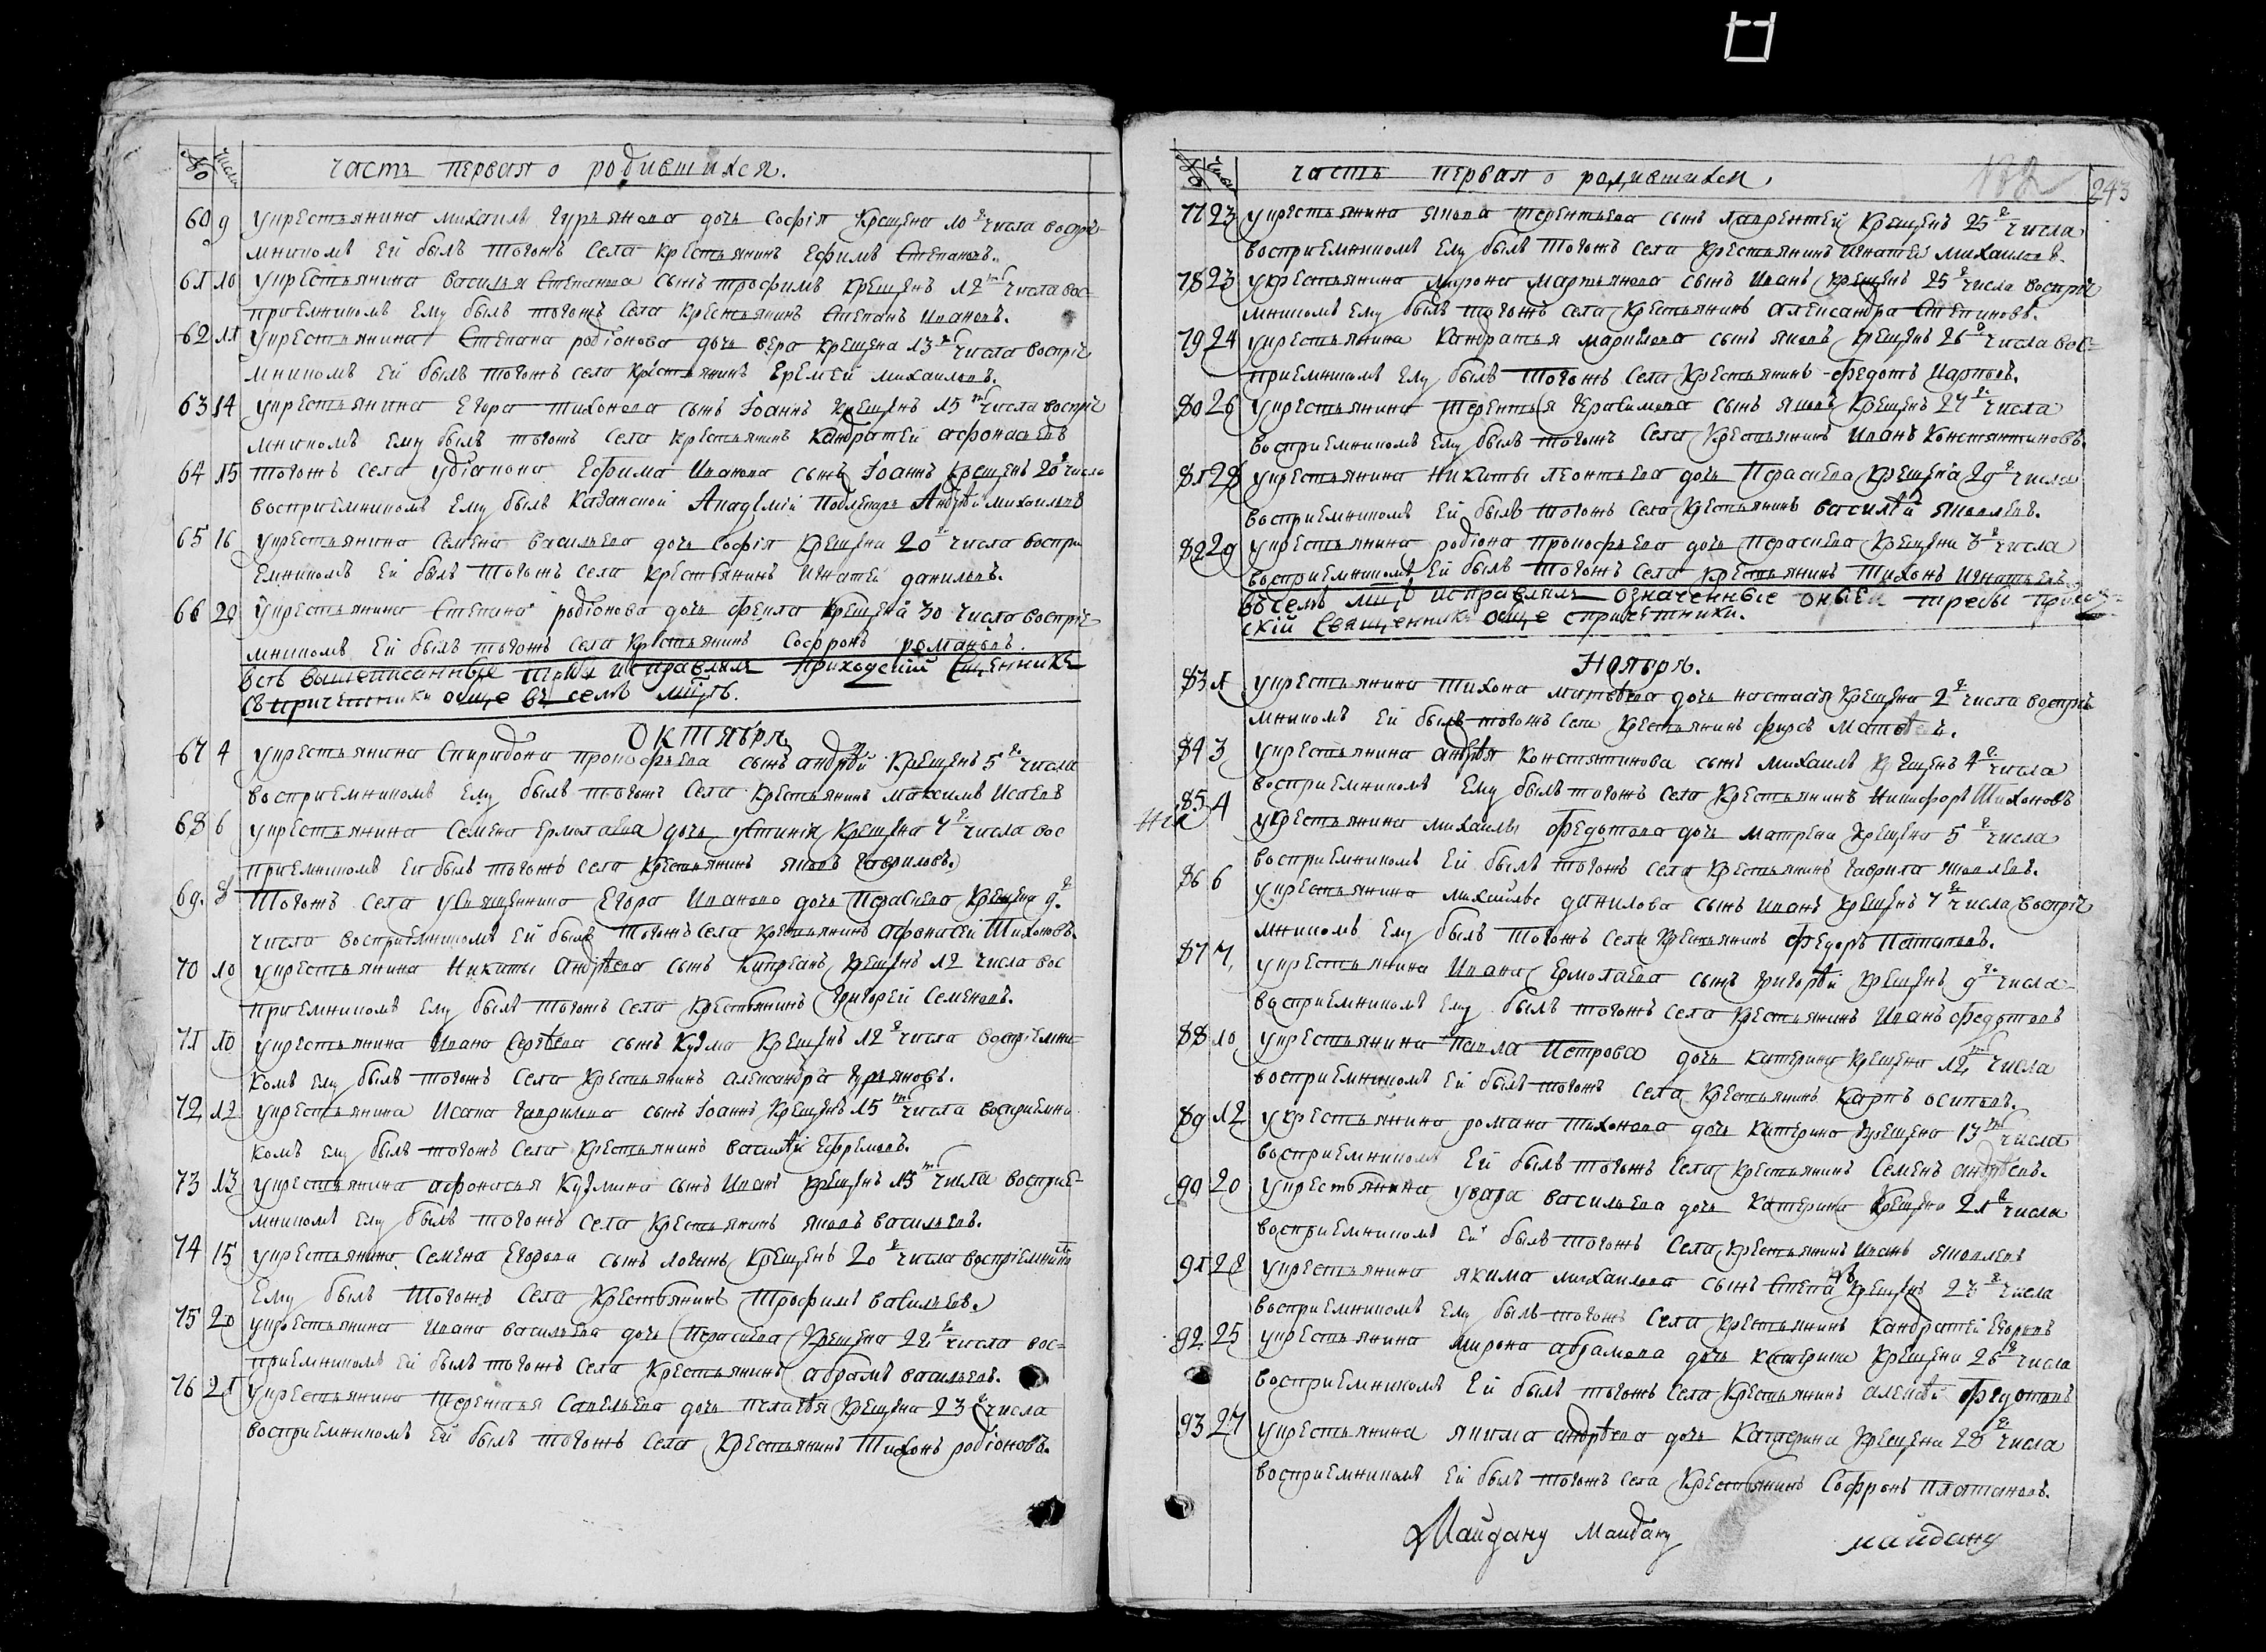 № числа часть первая о родившихся.
60 9 укрестьянина михаила гурьянова дочь Софія Крещена 10 г числа воспрїе-
мникомъ Ей былъ тогожъ Села крестьянинъ Ефимъ Степановъ.
61 10 укрестьянина василья Степанова сынъ трофимъ крещенъ 12 го числа вос-
приемникомъ Ему былъ тогожъ Села Крестьянинъ Степанъ Ивановъ.
62 11 укрестьянина Степана родіонова дочь вера крещена 13 го числа воспріе
мникомъ Ей былъ тогожъ села крестьянинъ Еремей михаиловъ.
63 14 укрестьянина Егора тихонова сынъ Іоаннъ крещенъ 15 числа воспріе
мникомъ Ему былъ тогожъ села крестьянинъ Кандратей афонасьевъ
64 15 тогожъ села удіакона Ефима Иванова сынъ Іоаннъ крещенъ 20 г числа
восприемникомъ Ему былъ Казанской Академіи Андрей михаиловъ
65 16 укрестьянина Семена васильева дочь Софія Крещена 20 г числа воспри
емникомъ Ей былъ тогожъ села крестьянинъ Игнатей даниловъ.
66 29 укрестьянина Степана родіонова дочь фекла Крещена 30 числа воспріе
мникомъ Ей былъ тогожъ села Крестьянинъ Софронъ романовъ.
всѣ вышеписанные требы исправлялъ приходскій Сщенникъ
съ причетники обще въ семъ мцѣ.
Октября
67 4 укрестьянина Спиридона прокофьева сынъ андрей Крещенъ 5 г числа
восприемникомъ Ему былъ тогожъ Села Крестьянинъ максимъ Исаевъ
68 6 укрестьянина Семена Ермолаева дочь устинія Крещена 7 г числа вос
приемникомъ Ей былъ тогожъ села Крестьянинъ яковъ Гавриловъ.
69. 8 Тогожъ села усвященника Егора Иванова дочь Параскева Крещена 9 г.
числа восприемникомъ Ей былъ тогожъ Села крестьянинъ афонасей Тихоновъ.
70 10 укрестьянина Никиты андреева сынъ Кипреанъ крещенъ 12 числа вос
приемникомъ Ему былъ тогожъ села Крестьянинъ Григорей Семеновъ.
71 10 укрестьянина Ивана Сергѣева сынъ Кузма Крещенъ 12 г числа воспріемни-
комъ ему былъ тогожъ села Крестьянинъ александра гурьяновъ.
72 12 укрестьянина Исака гаврилова сынъ Іоаннъ Крещенъ 15 го числа восприемни
комъ ему былъ тогожъ Села Крестьянинъ василѣй Ефремовъ.
73 13 укрестьянина афонасья Кузмина сынъ Иванъ крещенъ 15 го числа восприе-
мникомъ Ему былъ тогожъ Села Крестьянинъ яковъ васильевъ.
74 15 укрестьянина Семена Егорова сынъ логинъ Крещенъ 20 г числа воспріемникомъ
Ему былъ тогожъ Села Крестьянинъ Трофимъ васильевъ.
75 20 укрестьянина Ивана васильева дочь Параскева Крещена 22 г числа вос-
приемникомъ Ей былъ тогожъ Села Крестьянинъ абрамъ васильевъ.
76 21 укрестьянина терентья Савельева дочь пелагѣя Крещена 23 г числа
восприемникомъ Ей былъ тогожъ Села Крестьянинъ Тихонъ родіоновъ.
№ числа часть первая о родившихся 243
77 23 укрестьянина якова терентьева сынъ лаврентей Крещенъ 25 г числа
восприемникомъ Ему былъ тогожъ села крестьянинъ Игнатей михаиловъ.
78 23 укрестьянина мирона мартьянова сынъ Иванъ крещенъ 25 г числа воспріе
мникомъ Ему былъ тогожъ села Крестьянинъ александра Степановъ.
79 24 укрестьянина Кандратья маркелова сынъ яковъ Крещенъ 26 г числа вос-
приемникомъ Ему былъ тогожъ Села Крестьянинъ федотъ Карповъ.
80 26 укрестьянина терентья герасимова сынъ яковъ Крещенъ 27 г числа
восприемникомъ Ему былъ тогожъ Села Крестьянинъ Иванъ Константиновъ.
81 28 укрестьянина Никиты леонтьева дочь Параскева Крещена 29 г числа
восприемникомъ Ей былъ тогожъ Села Крестьянинъ василѣй яковлевъ.
82 29 укрестьянина родіона прокофьева дочь Параскева Крещена г числа
восприемникомъ Ей былъ тогожъ Села Крестьянинъ Тихонъ Игнатьевъ
въ семъ мцѣ исправлялъ означенные требы приход-
скій Священникъ обще спричетники.
Ноября.
83 1 укрестьянина тихона матвѣева дочь настасія Крещена 2 г числа воспріе
мникомъ Ей былъ тогожъ Села Крестьянинъ фирсъ Матвѣевъ.
84 3 укрестьянина андрѣя Константинова сынъ михаилъ Крещенъ 4 г числа
восприемникомъ Ему былъ тогожъ села Крестьянинъ Никифоръ Тихоновъ
85 4 укрестьянина михаилы федотова дочь матрена Крещена 5 г числа
восприемникомъ Ей былъ тогожъ села Крестьянинъ гаврила яковлевъ.
86 6 укрестьянина михаилы данилова сынъ Иванъ Крещенъ 7 г числа воспріе
мникомъ Ему былъ тогожъ Села Крестьянинъ федоръ Патаповъ.
87 7 укрестьянина Ивана Ермолаева сынъ григорѣй Крещенъ 9 г числа
восприемникомъ Ему былъ тогожъ села Крестьянинъ Иванъ федотовъ
88 10 укрестьянина Павла Петрова дочь катерина Крещена 12 го числа
восприемникомъ Ей былъ тогожъ Села Крестьянинъ Карпъ осиповъ.
89 12 укрестьянина романа тихонова дочь катерина Крещена 13 го числа
восприемникомъ Ей былъ тогожъ села Крестьянинъ Семенъ андрѣевъ.
90 20 укрестьянина увара васильева дочь Катерина Крещена 21 г числа
восприемникомъ Ей былъ тогожъ Села Крестьянинъ Иванъ яковлевъ
91 22 укрестьянина якима михаилова сынъ Степанъ Крещенъ 23 г числа
восприемникомъ Ему былъ тогожъ Села Крестьянинъ Кандратей Егоровъ
92 25 укрестьянина мирона абрамова дочь катерина Крещена 26 г числа
восприемникомъ Ей былъ тогожъ села Крестьянинъ алексѣй федотовъ
93 27 укрестьянина якима андрѣева дочь Катерина Крещена 28 г числа
восприемникомъ Ей былъ тогожъ села Крестьянинъ Софронъ Платоновъ.
Майдану Майдану майдану